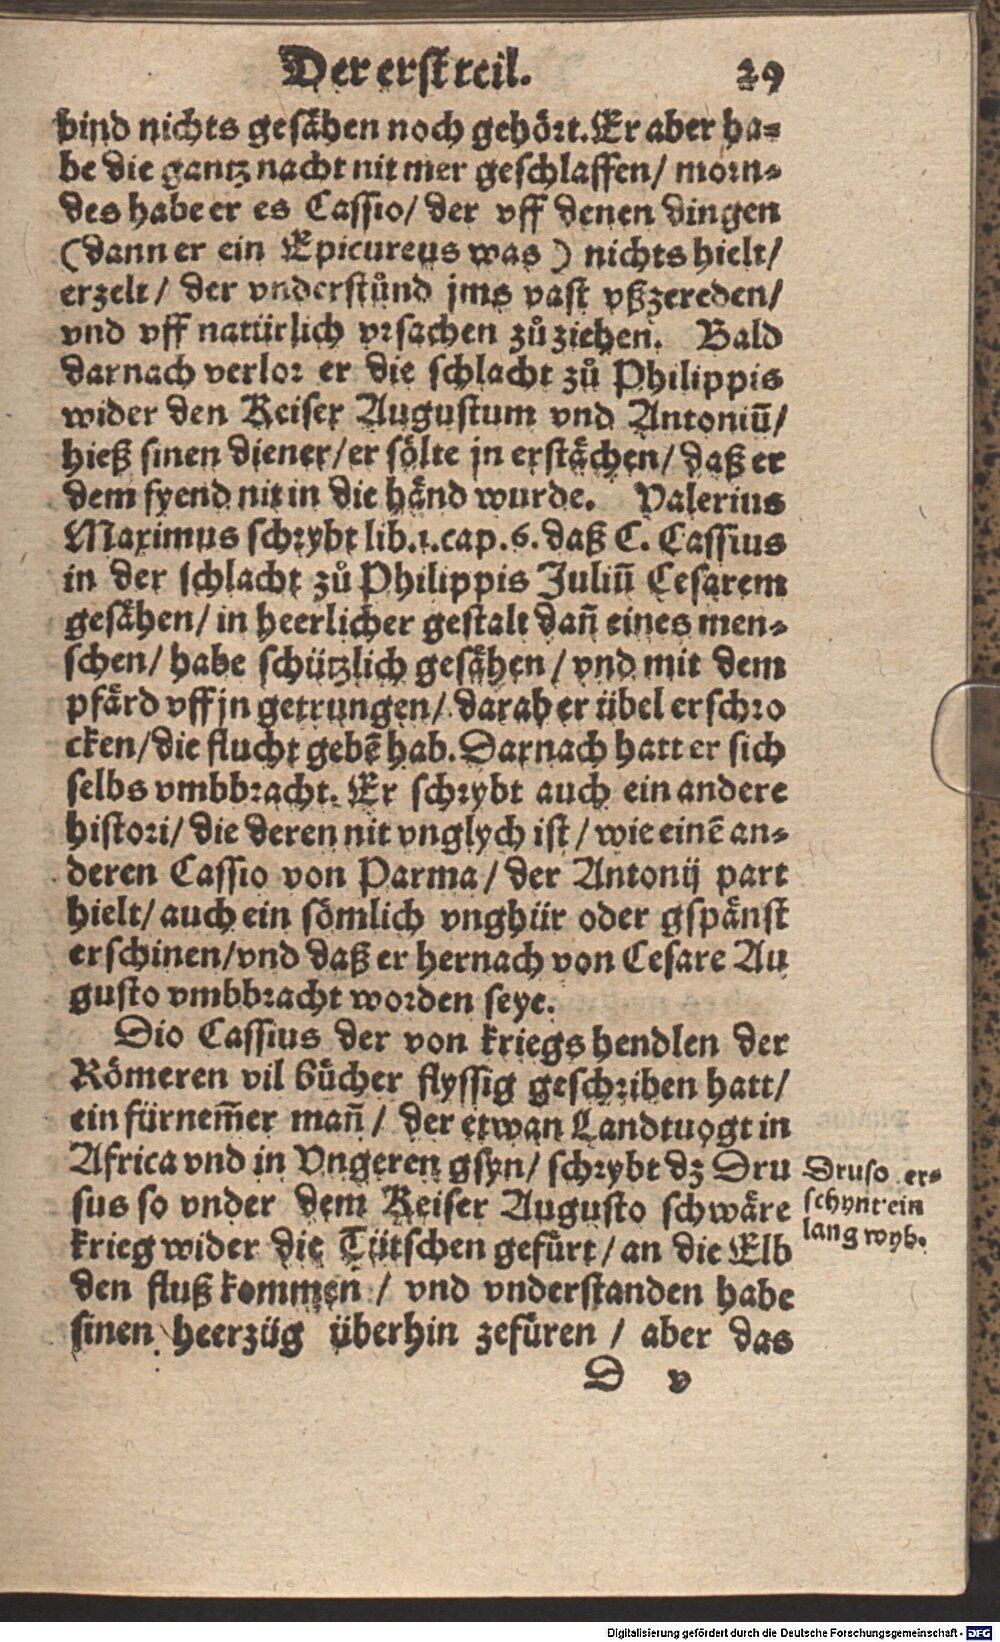 Der erst teil. 29
hind nichts gesaͤhen noch gehoͤrt. Er aber ha⸗
be die gantz nacht nit mer geschlaffen/ morn⸗
des habe er es Cassio/ der vff denen dingen
(dann er ein Epicureus was) nichts hielt/
erzelt/ der vnderstuͦnd jms vast vßzereden/
vnd vff natürlich vrsachen zuͦ ziehen. Bald
darnach verlor er die schlacht zuͦ Philippis
wider den Keiser Augustum vnd Antoniū/
hieß sinen diener/ er soͤlte jn erstaͤchen/ daß er
dem fyend nit in die haͤnd wurde. Valerius
Maximus schrybt lib.1.cap.6. daß C. Cassius
in der schlacht zuͦ Philippis Juliū Cesarem
gesaͤhen/ in heerlicher gestalt dañ eines men⸗
schen/ habe schützlich gesaͤhen/ vnd mit dem
pfaͤrd vff jn getrungen/ darab er übel erschro
cken/ die flucht gebē hab. Darnach hatt er sich
selbs vmbbracht. Er schrybt auch ein andere
histori/ die deren nit vnglych ist/ wie einē an⸗
deren Cassio von Parma/ der Antonij part
hielt/ auch ein soͤmlich vnghür oder gspaͤnst
erschinen/ vnd daß er hernach von Cesare Au
gusto vmbbracht worden seye.
Dio Cassius der von kriegs hendlen der
Roͤmeren vil buͤcher flyssig geschriben hatt/
ein fürnem̄er mañ/ der etwan Landtuogt in
Africa vnd in Vngeren gsyn/ schrybt dz Dru
sus so vnder dem Keiser Augusto schwaͤre
krieg wider die Tütschen gefuͤrt/ an die Elb
den fluß kommen/ vnd vnderstanden habe
sinen heerzüg überhin zefuͤren/ aber das
D v
Druso er⸗
schynt ein
lang wyb.
Digitalisierung gefördert durch die Deutsche Forschungsgemeinschaft - DFG